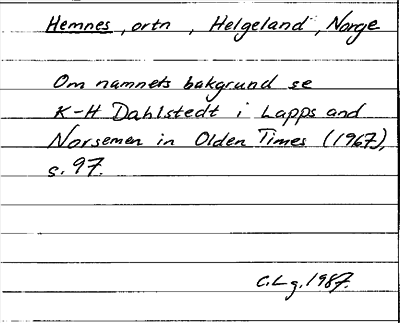 Hemnes, ortn, Helgeland, Norge
Om namnets bakgrund se
K-H Dahlstedt i Lapps and
Norsemen in Olden Times (1967),
s. 97.
C.Lg. 1987.